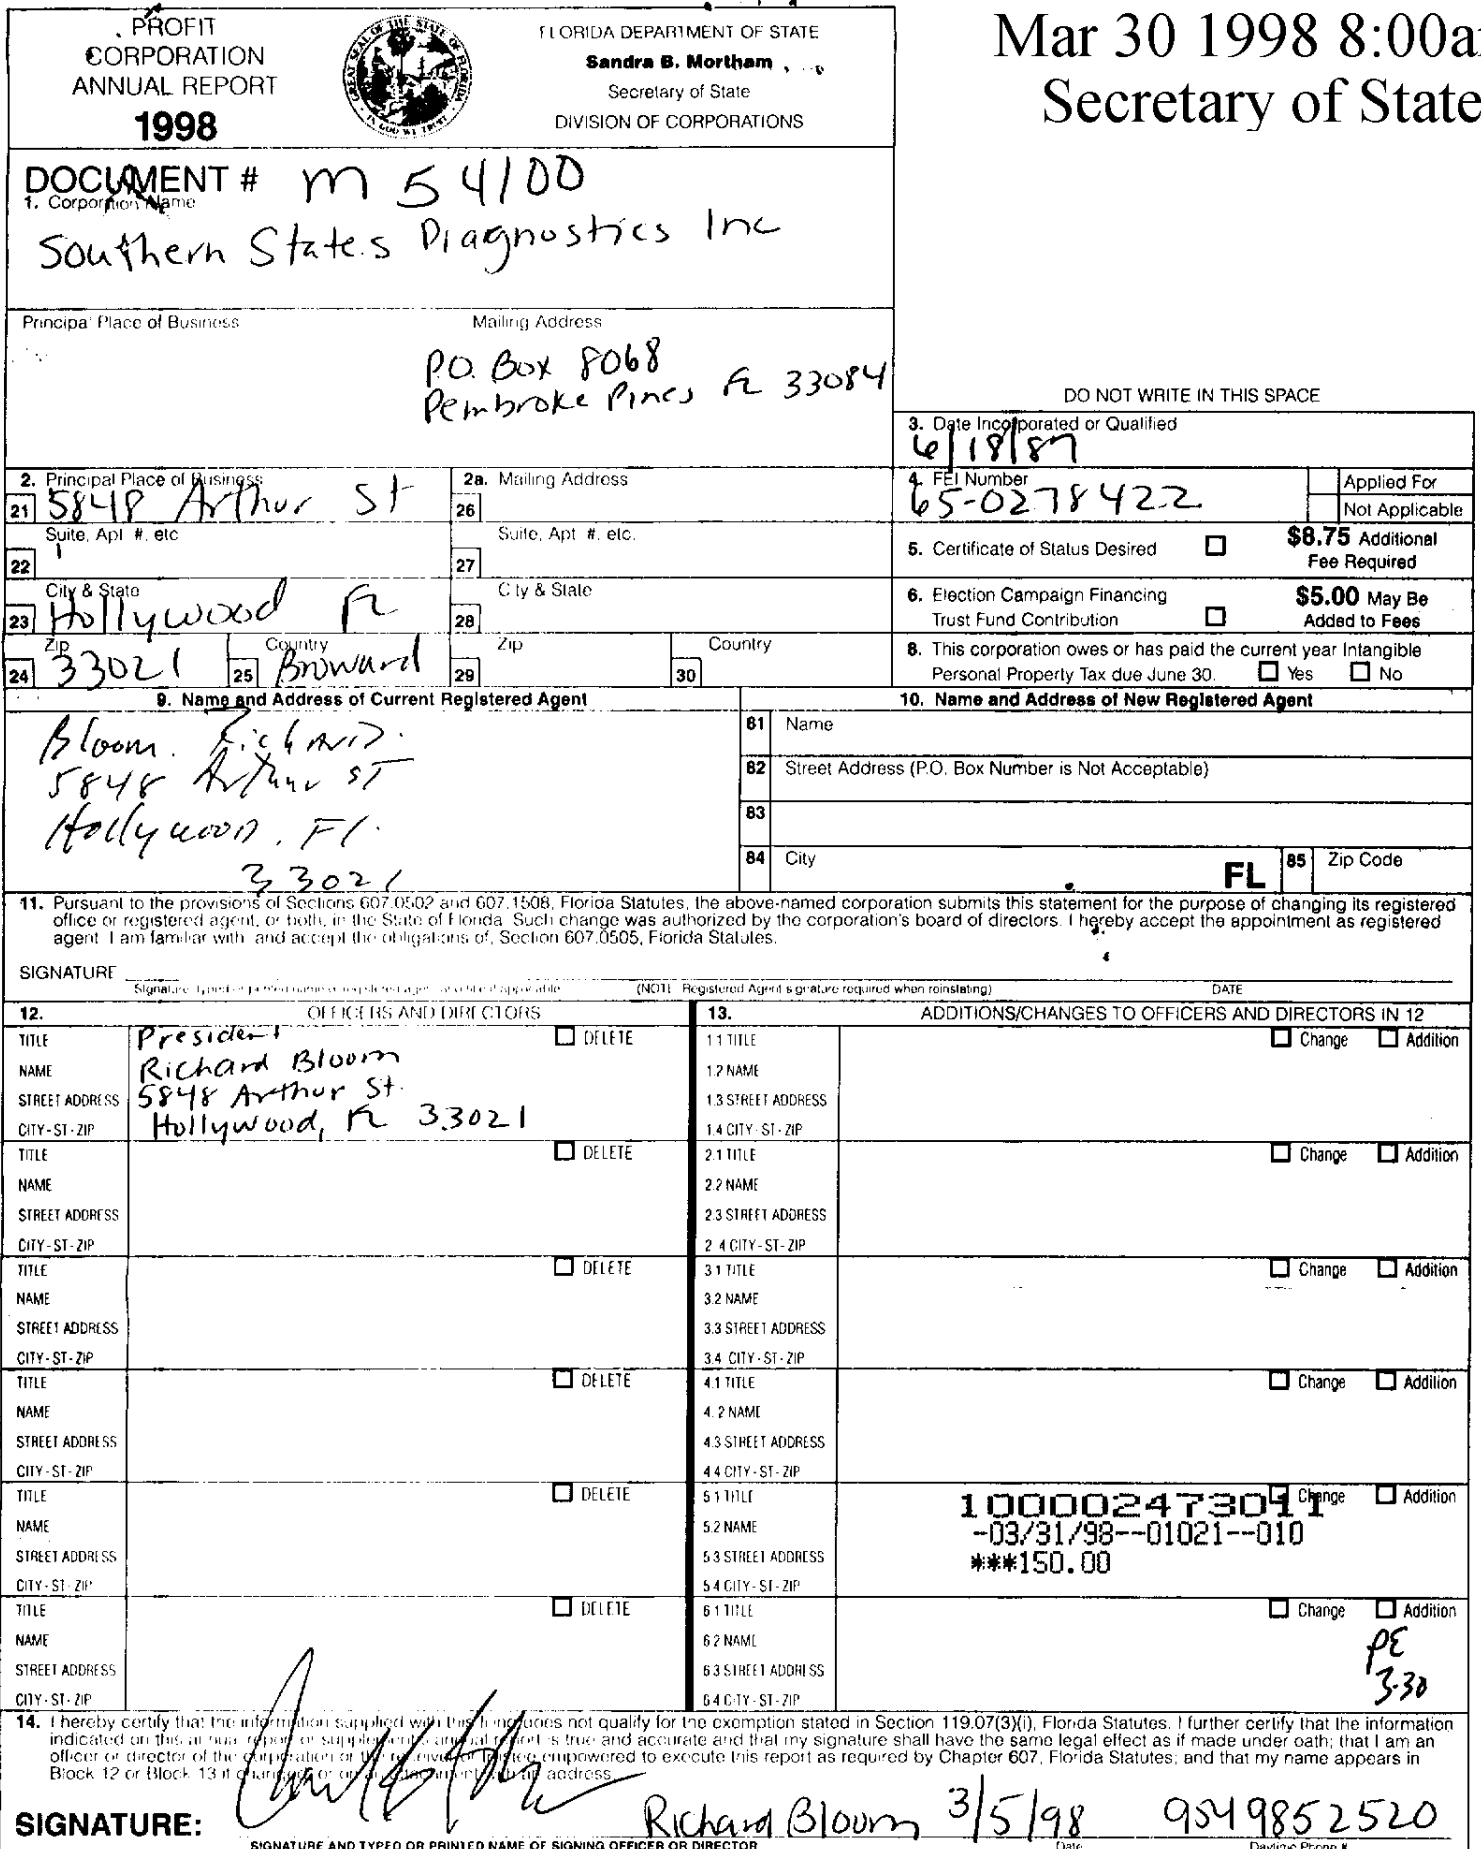 PROFIT
CORPORATION
ANNUAL REPORT
1998
FLORIDA DEPARTMENT OF STATE
Sandra B. Mortham
Secretary of State
DIVISION OF CORPORATIONS
Mar 30 1998 8:00a
Secretary of State
DOCUMENT # M 54100
1. Corporation Name
Southern States Diagnostics Inc
Principal Place of Business
Mailing Address
P.O. Box 8068
Pembroke Pines FL 33084
DO NOT WRITE IN THIS SPACE
3. Date Incorporated or Qualified
6/18/87
2. Principal Place of Business
21 5848 Arthur St
2a. Mailing Address
26
4. FEI Number
65-0278422
Applied For
Not Applicable
Suite, Apt #, etc
22
Suite, Apt #, etc.
27
5. Certificate of Status Desired
$8.75 Additional
Fee Required
City & State
23 Hollywood FL
City & State
28
6. Election Campaign Financing
Trust Fund Contribution
$5.00 May Be
Added to Fees
Zip
24 33021
Country
25 Broward
Zip
29
Country
30
8. This corporation owes or has paid the current year Intangible
Personal Property Tax due June 30. Yes No
9. Name and Address of Current Registered Agent
Bloom. Richard.
5848 Arthur ST
Hollywood, Fl.
33021
10. Name and Address of New Registered Agent
81 Name
82 Street Address (P.O. Box Number is Not Acceptable)
83
84 City FL 85 Zip Code
11. Pursuant to the provisions of Sections 607.0502 and 607.1508, Florida Statutes, the above-named corporation submits this statement for the purpose of changing its registered
office or registered agent, or both, in the State of Florida. Such change was authorized by the corporation's board of directors. I hereby accept the appointment as registered
agent. I am familiar with, and accept the obligations of, Section 607.0505, Florida Statutes.
SIGNATURE
Signature, typed or printed name of registered agent and title if applicable (NOTE Registered Agent signature required when reinstating) DATE
12. OFFICERS AND DIRECTORS
13. ADDITIONS/CHANGES TO OFFICERS AND DIRECTORS IN 12
TITLE President DELETE
NAME Richard Bloom
STREET ADDRESS 5848 Arthur St.
CITY-ST-ZIP Hollywood, FL 33021
1.1 TITLE Change Addition
1.2 NAME
1.3 STREET ADDRESS
1.4 CITY-ST-ZIP
TITLE DELETE
NAME
STREET ADDRESS
CITY-ST-ZIP
2.1 TITLE Change Addition
2.2 NAME
2.3 STREET ADDRESS
2.4 CITY-ST-ZIP
TITLE DELETE
NAME
STREET ADDRESS
CITY-ST-ZIP
3.1 TITLE Change Addition
3.2 NAME
3.3 STREET ADDRESS
3.4 CITY-ST-ZIP
TITLE DELETE
NAME
STREET ADDRESS
CITY-ST-ZIP
4.1 TITLE Change Addition
4.2 NAME
4.3 STREET ADDRESS
4.4 CITY-ST-ZIP
TITLE DELETE
NAME
STREET ADDRESS
CITY-ST-ZIP
5.1 TITLE Change Addition
5.2 NAME
5.3 STREET ADDRESS
5.4 CITY-ST-ZIP
100002473041
-03/31/98--01021--010
***150.00
TITLE DELETE
NAME
STREET ADDRESS
CITY-ST-ZIP
6.1 TITLE Change Addition
6.2 NAME
6.3 STREET ADDRESS
6.4 CITY-ST-ZIP
PE
3-30
14. I hereby certify that the information supplied with this filing does not qualify for the exemption stated in Section 119.07(3)(i), Florida Statutes. I further certify that the information
indicated on this annual report or supplemental annual report is true and accurate and that my signature shall have the same legal effect as if made under oath; that I am an
officer or director of the corporation or the receiver or trustee empowered to execute this report as required by Chapter 607, Florida Statutes; and that my name appears in
Block 12 or Block 13 if changed, or on an attachment with an address.
SIGNATURE: Richard Bloom 3/5/98 9549852520
SIGNATURE AND TYPED OR PRINTED NAME OF SIGNING OFFICER OR DIRECTOR Date Daytime Phone #